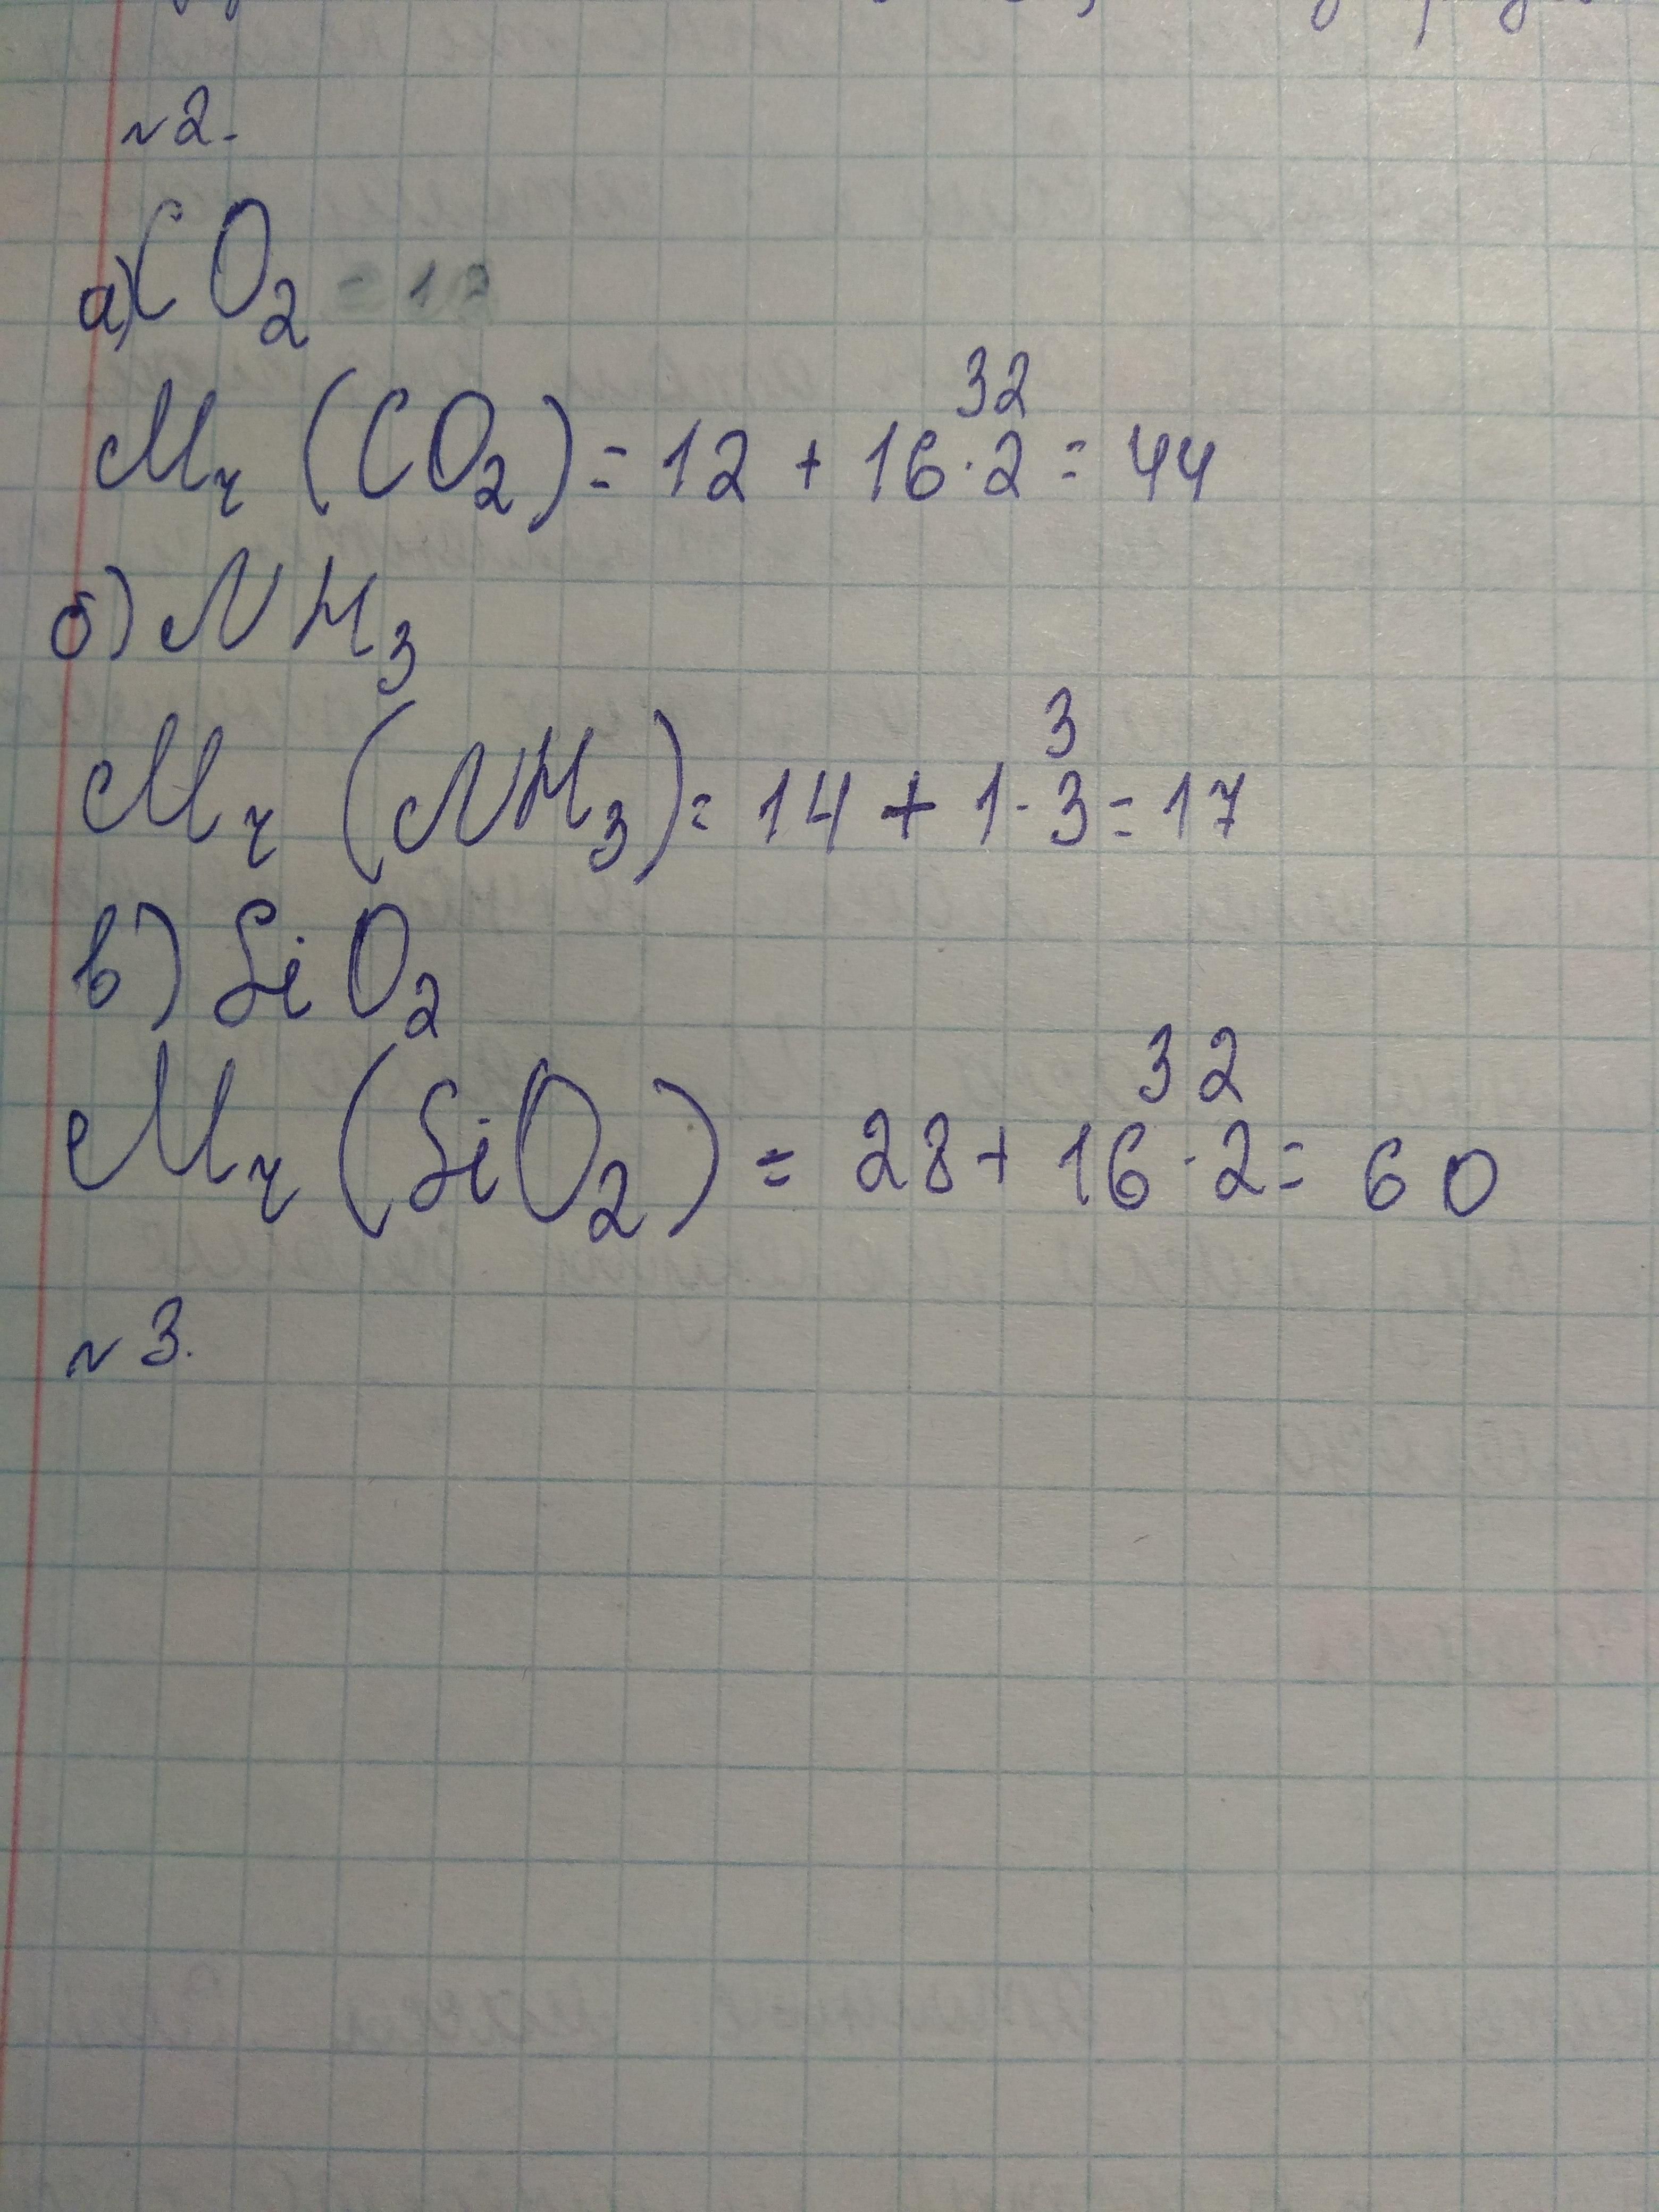 №2.
а) CO₂
Mr (CO₂) = 12 + 16 · 2 = 44
32
б) NH₃
Mr (NH₃) = 14 + 1 · 3 = 17
3
в) SiO₂
Mr (SiO₂) = 28 + 16 · 2 = 60
32
№3.